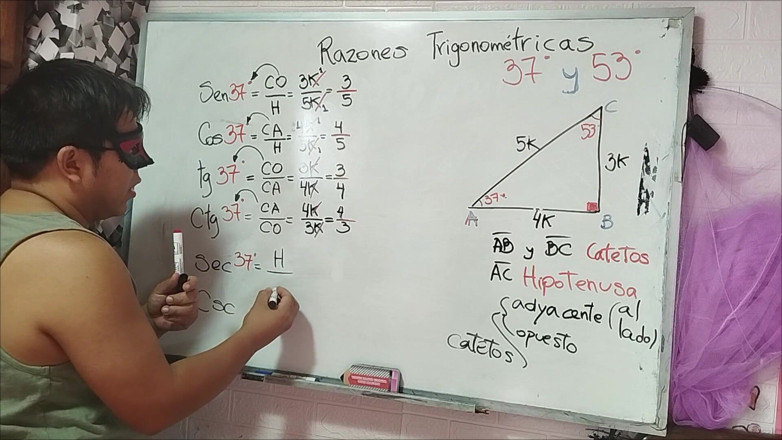 Razones Trigonométricas
37° y 53°
Sen 37° = CO/H = 3K/5K = 3/5
Cos 37° = CA/H = 4/5
tg 37° = CO/CA = 3K/4K = 3/4
Ctg 37° = CA/CO = 4K/3K = 4/3
Sec 37° = H
Csc
C
53°
5K
3K
37°
A
4K
B
AB y BC Catetos
AC Hipotenusa
Catetos { adyacente (al lado)
opuesto